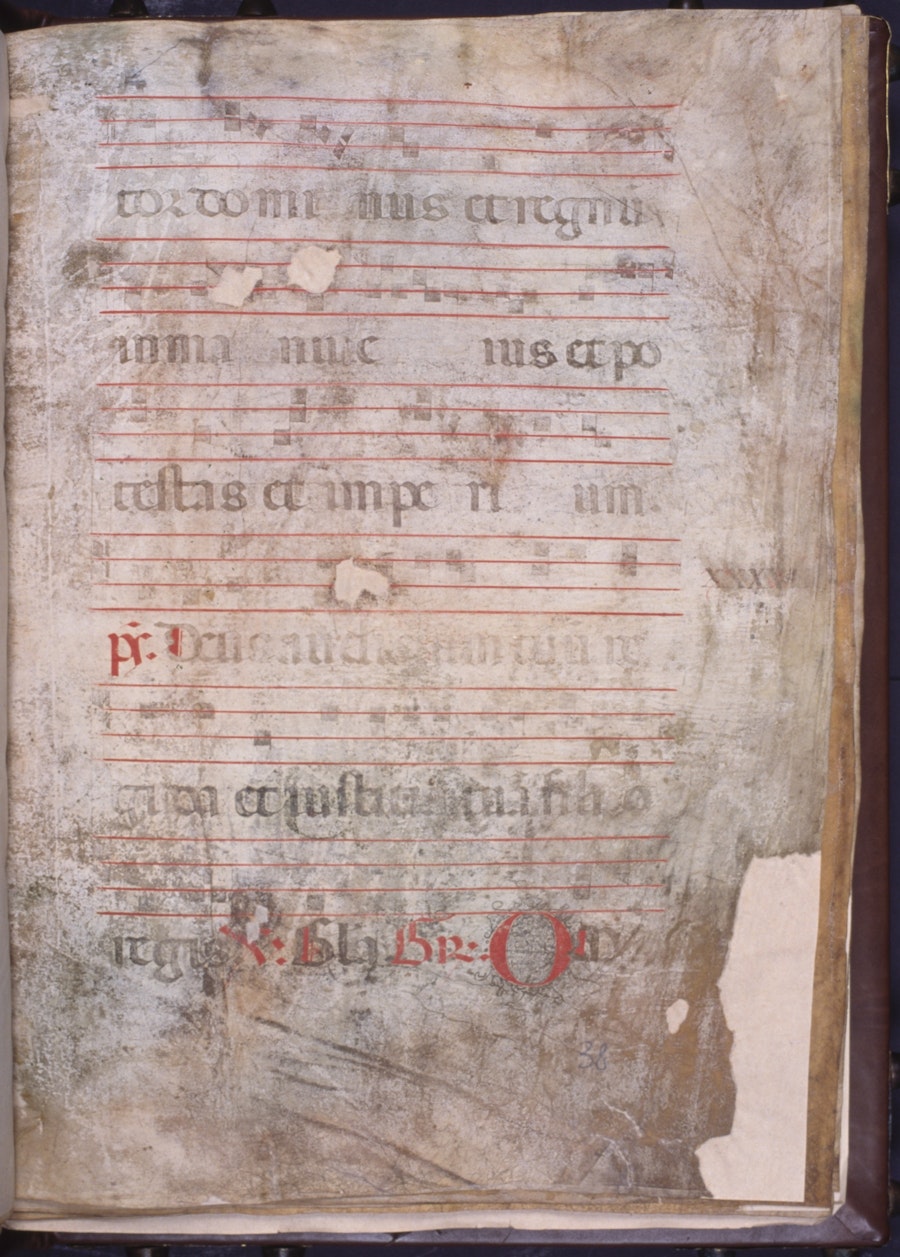 tor domi nus et regnu
in ma nu e ius et po
testas et impe ri um.
ps. Deus iudicium tuum re
gi da et iustitiam tuam filio
regis V. Glia Gr. O
38